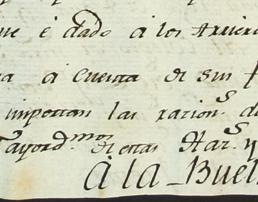 ue è dado á los Arriero
a á Cuenta de sus
importan las racion.s de
Mayord.mos de estas Har.s y
á la Buel